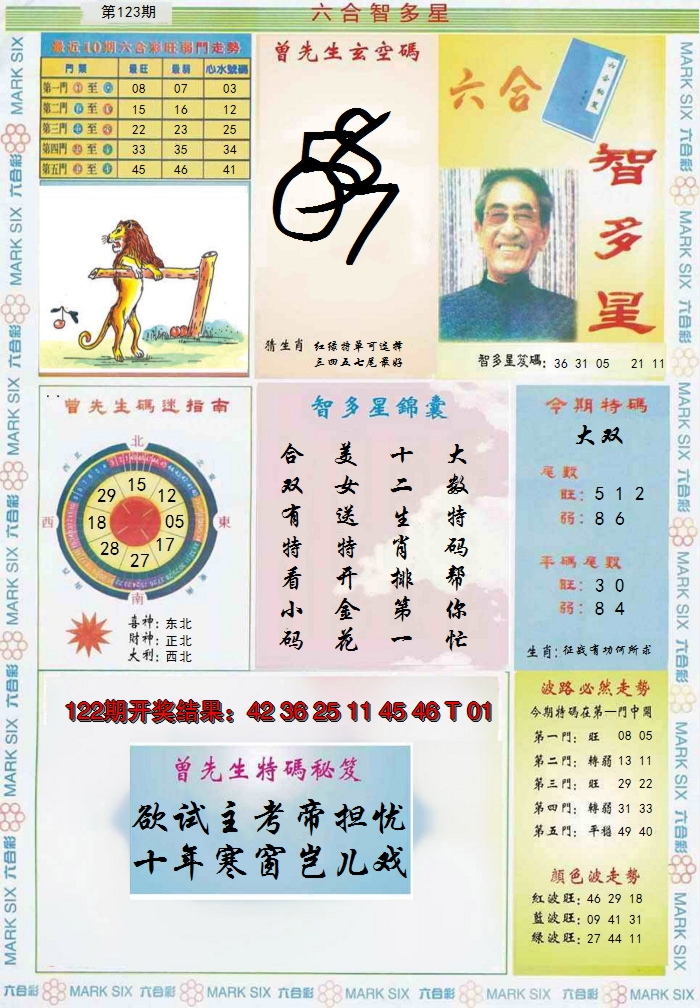 第123期
六合智多星
最近10期六合彩旺弱門走勢
門類 最旺 最弱 心水號碼
第一門 至 08 07 03
第二門 至 15 16 12
第三門 至 22 23 25
第四門 至 33 35 34
第五門 至 45 46 41
曾先生玄空碼
猜生肖 红绿特单可选择
三四五七尾最好
六合
智多星
智多星笈碼：36 31 05 21 11
曾先生碼迷指南
北
西
東
南
15
12
05
17
27
28
18
29
喜神：东北
財神：正北
大利：西北
智多星錦囊
大数特码帮你忙
十二生肖排第一
美女送特开金花
合双有特看小码
今期特碼
大双
尾數
旺：5 1 2
弱：8 6
平碼尾數
旺：3 0
弱：8 4
生肖：征战有功何所求
122期开奖结果：42 36 25 11 45 46 T 01
曾先生特碼秘笈
欲试主考帝担忧
十年寒窗岂儿戏
波路必然走勢
今期特碼在第一門中開
第一門：旺 08 05
第二門：轉弱 13 11
第三門：旺 29 22
第四門：轉弱 31 33
第五門：平穩 49 40
顏色波走勢
紅波旺：46 29 18
藍波旺：09 41 31
綠波旺：27 44 11
MARK SIX 六合彩